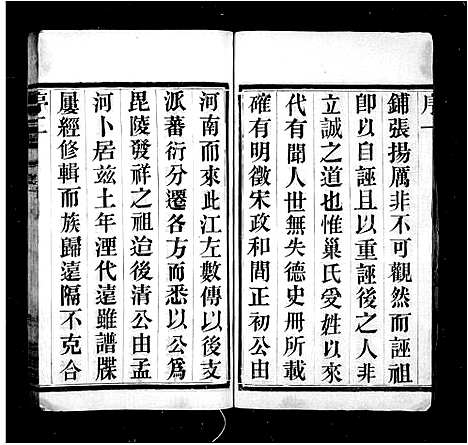 序一
鋪張揚厲非不可觀然而誣祖
卽以自誣且以重誣後之人非
立誠之道也惟巢氏受姓以來
代有聞人世無失德史冊所載
確有明徵宋政和間正初公由
河南而來此江左數傳以後支
派蕃衍分遷各方而悉以公爲
毘陵發祥之祖迨後清公由孟
河卜居茲土年湮代遠雖譜牒
屢經修輯而族歸遠隔不克合
序二